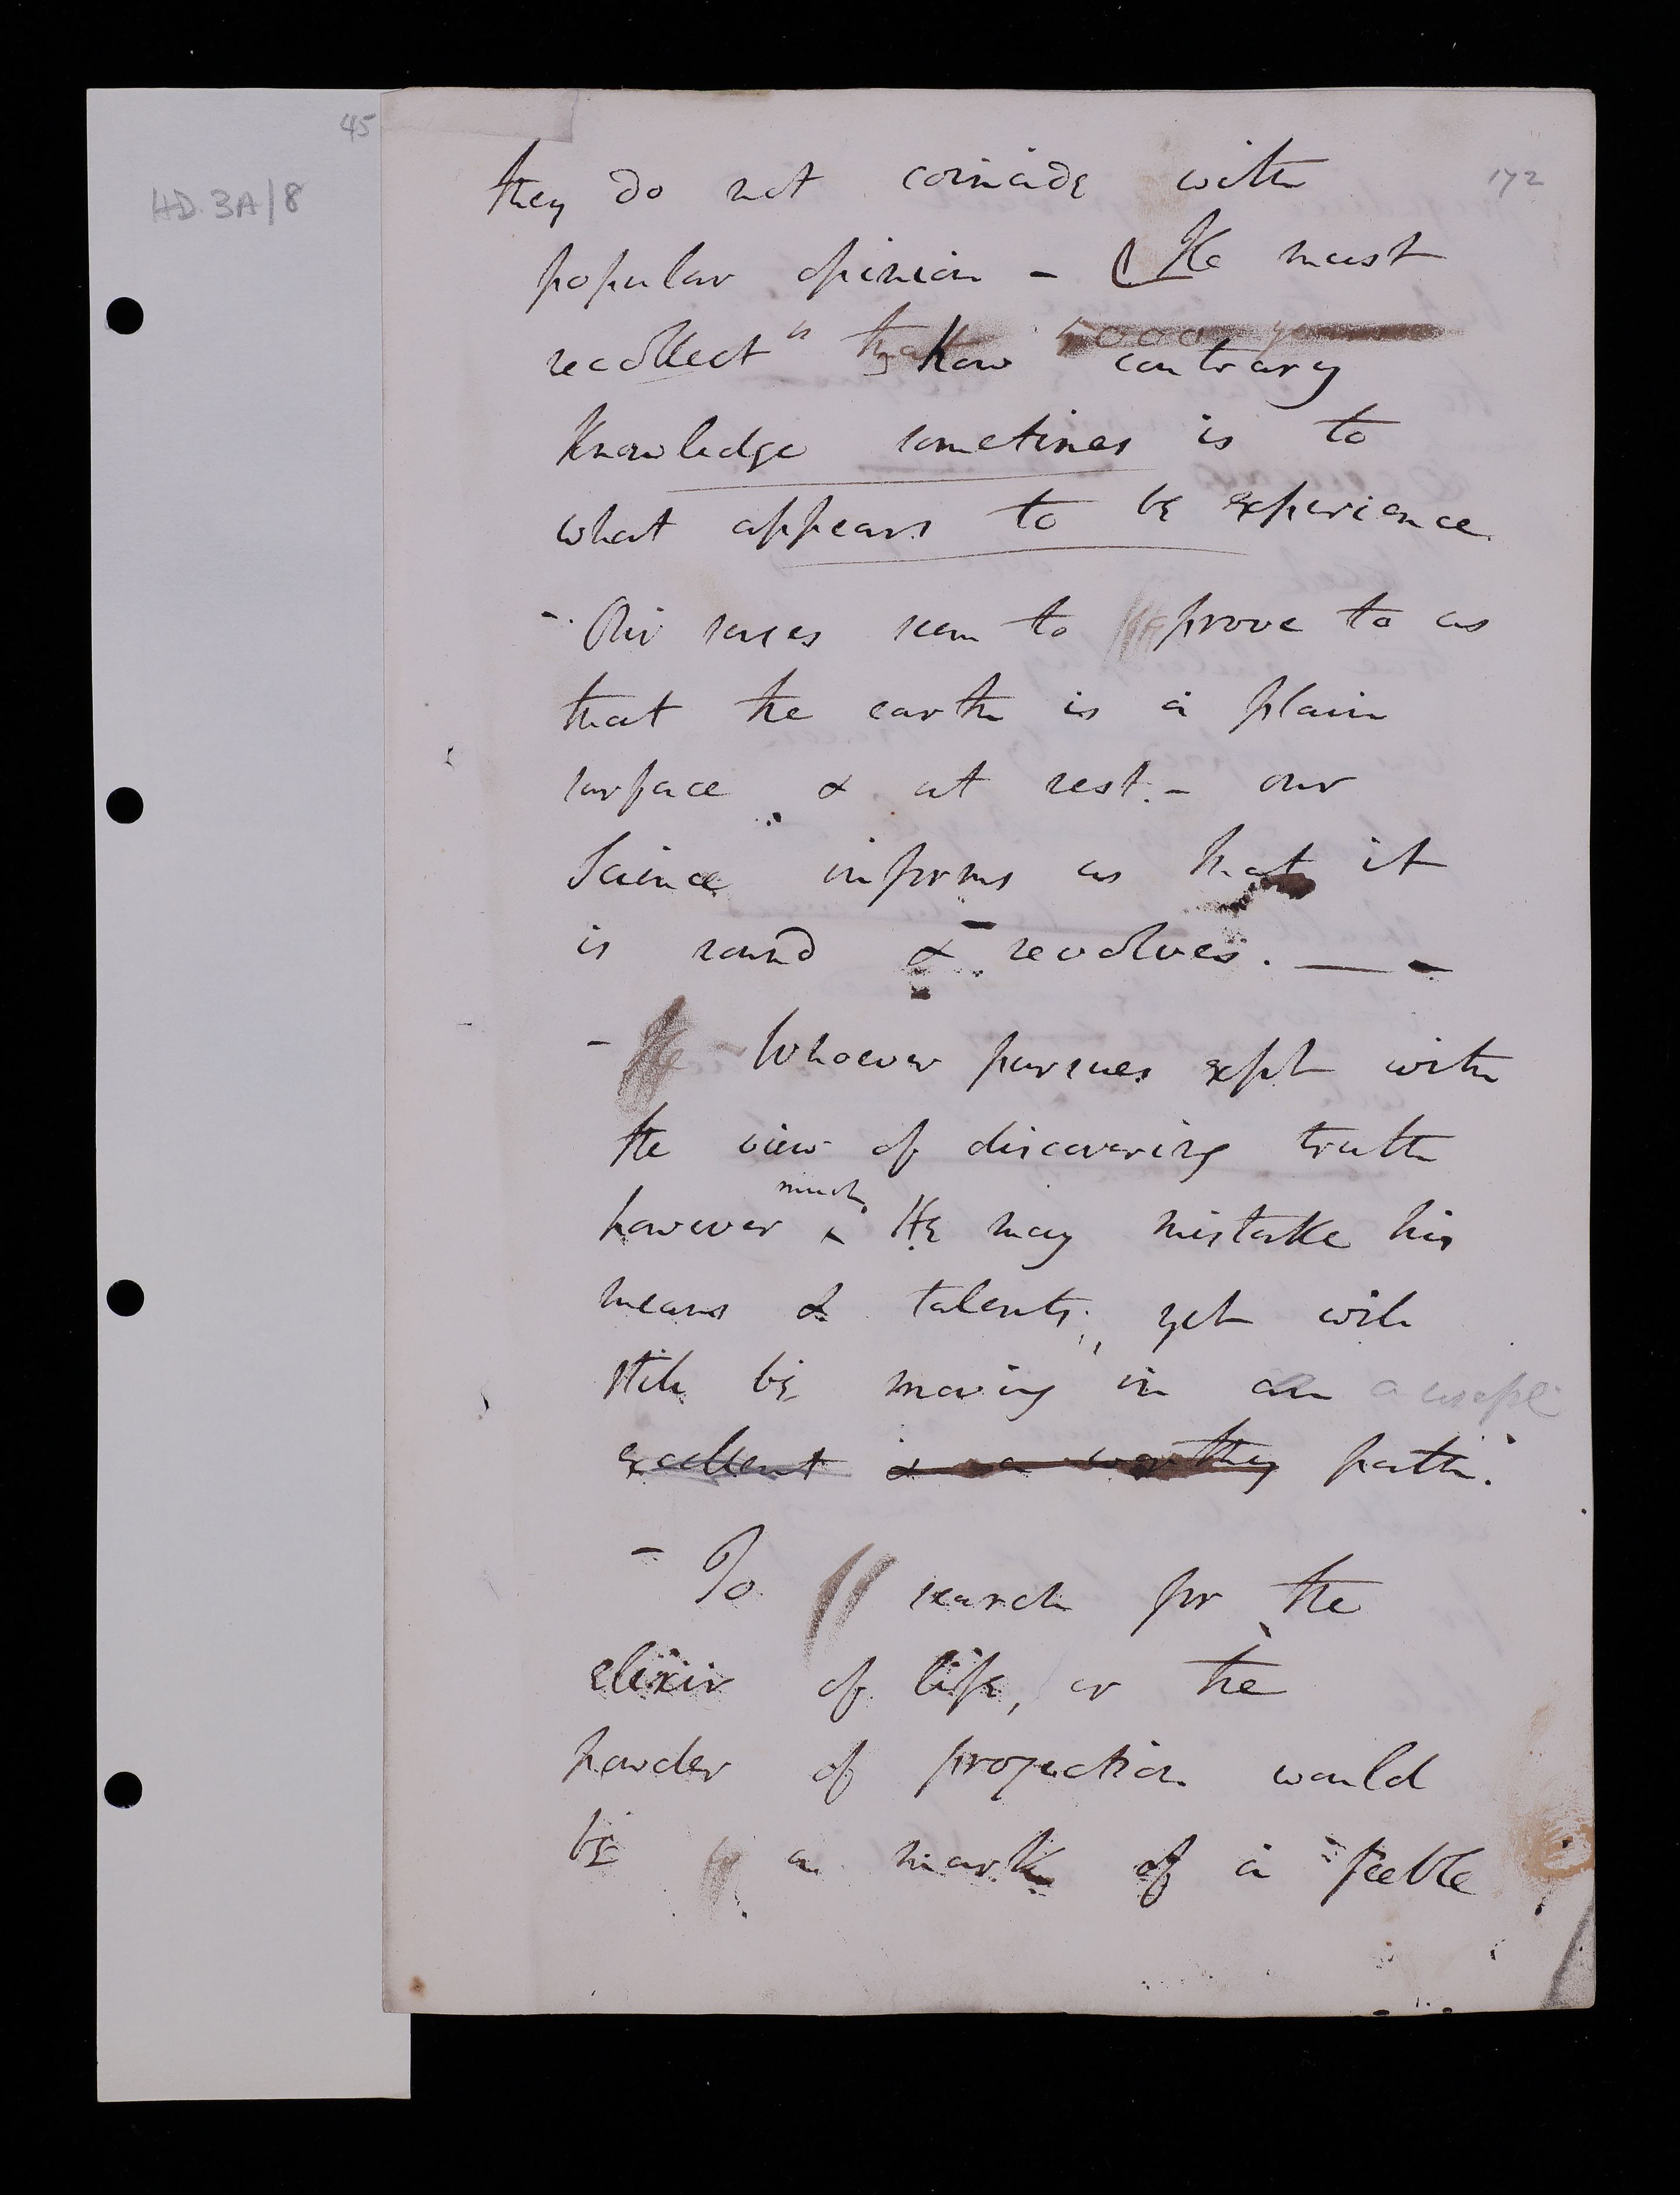 45
HD. 3A/8
172
they do not coincide with
popular opinion – ( He must
recollect " that 5000 years
how contrary
Knowledge sometimes is to
what appears to be experience.
– Our senses seem to prove to us
that the earth is a plain
surface & at rest. – our
Science informs us that it
is round & revolves. —–
– He – Whoever pursues expt with
the view of discovering truth
much
however ^ He may mistake his
means & talents; yet will
still be moving in an a useful
excellent & a worthy path.
– To search for the
elixir of life, or the
powder of projection would
be a mark of a feeble